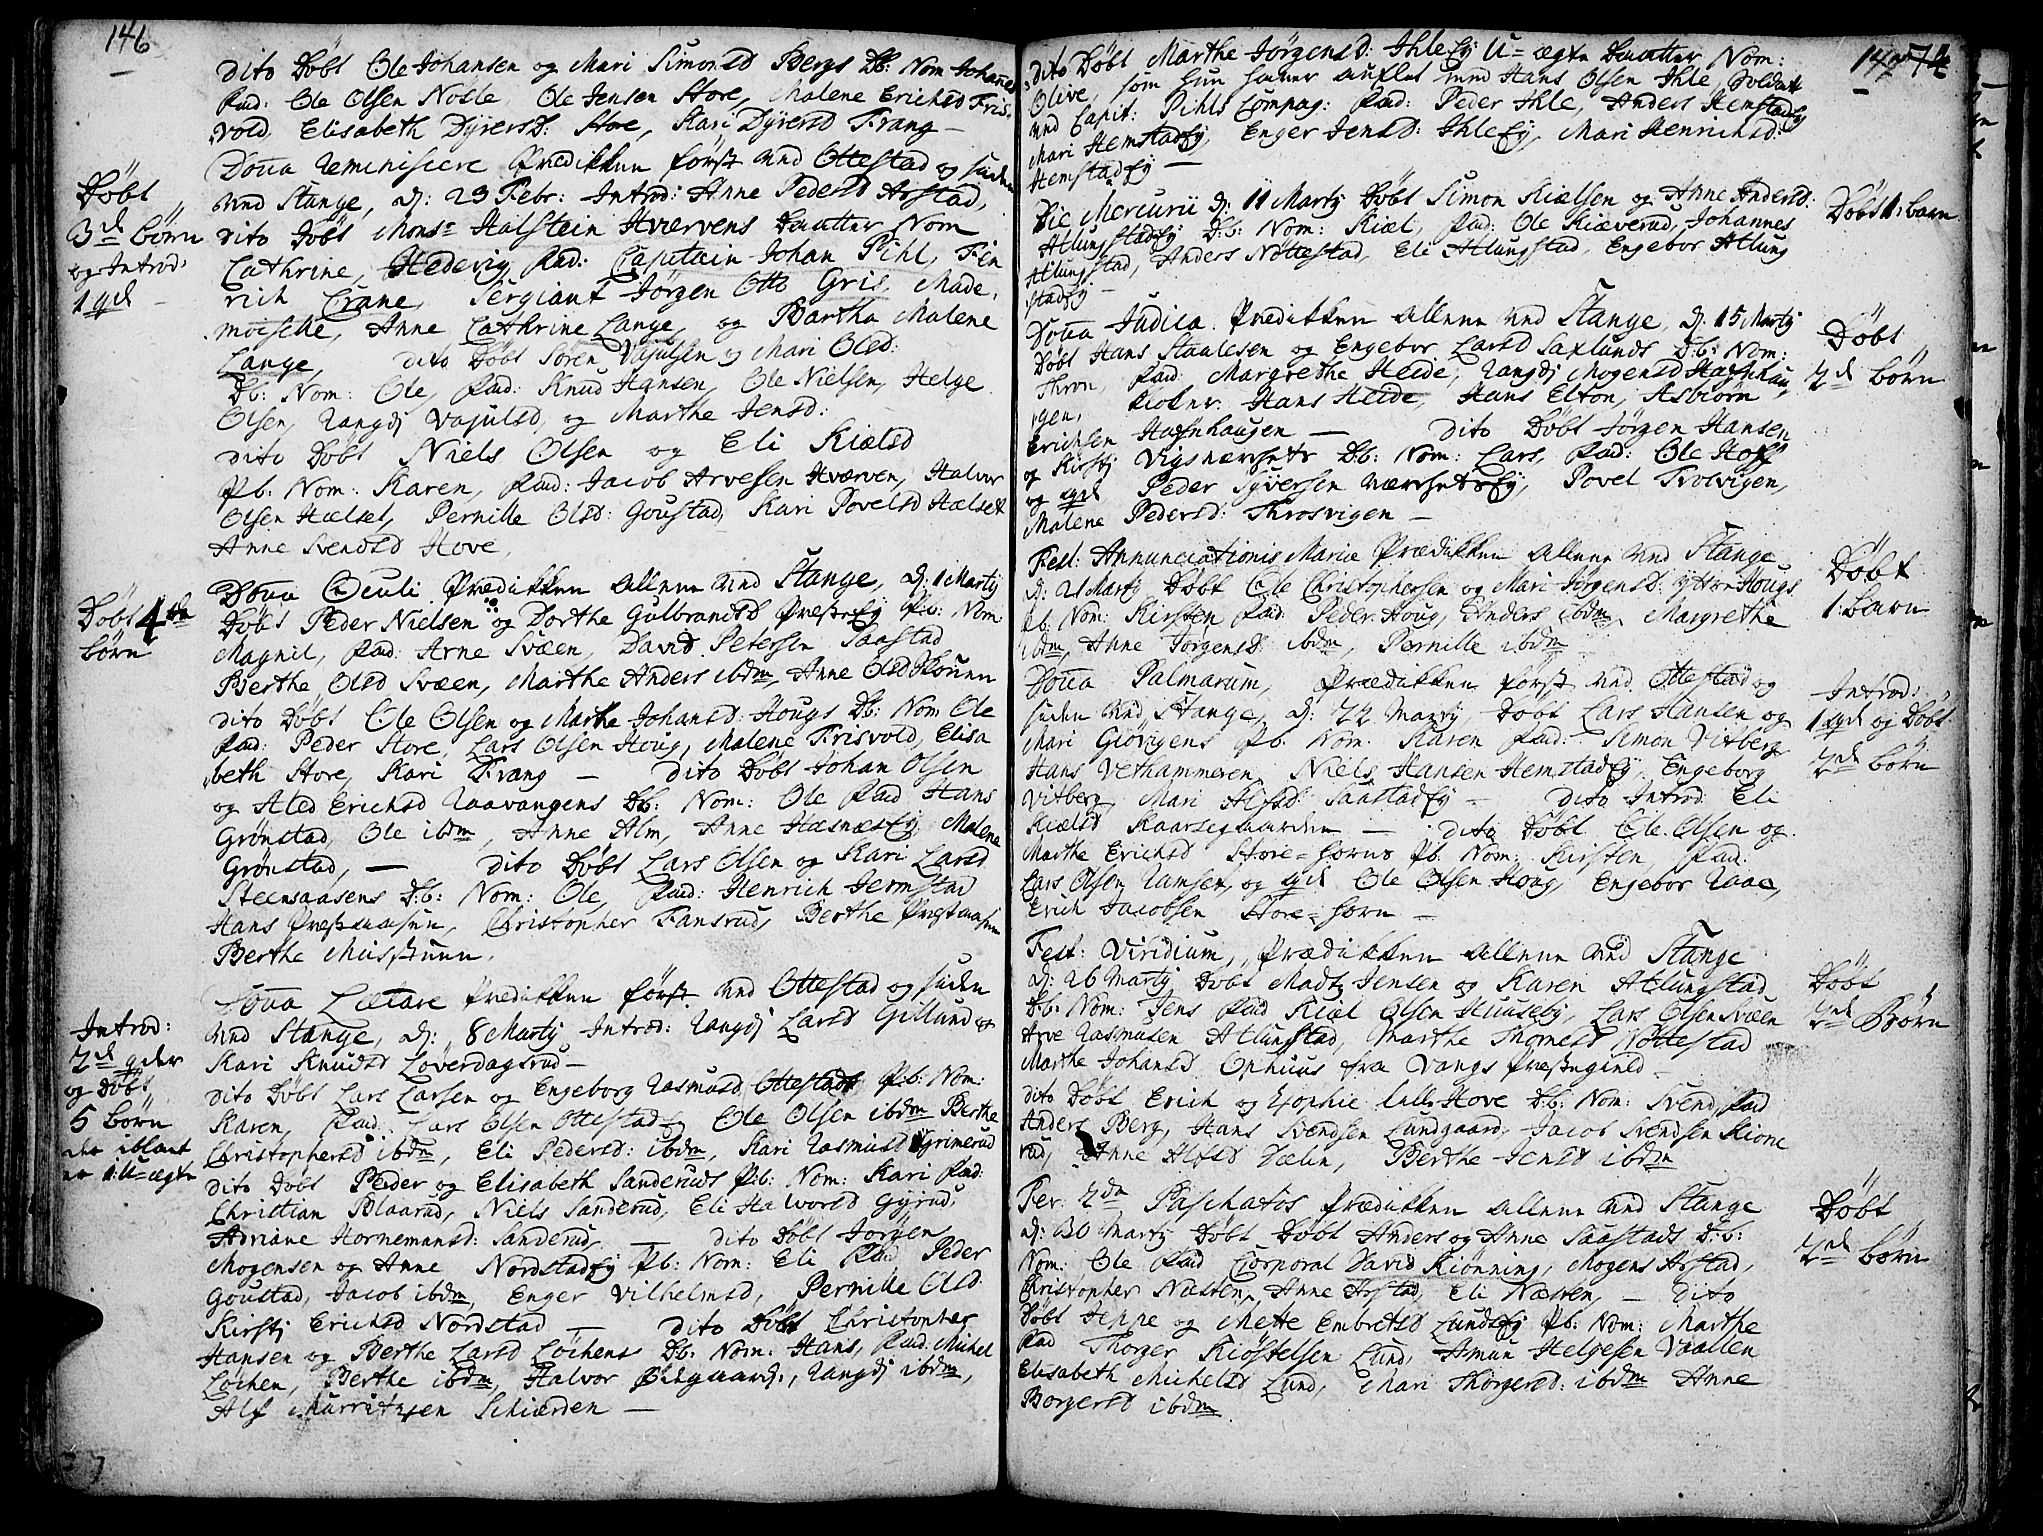 146
dito Döbt Ole Johansen og Mari Simonsd Bergs Db: Nom Johannes
Fad: Ole Olsen Noble Ole Jensen Store, Malene Erichsd Fris
vold Elisabeth Dÿrersd: Store, Kari Dÿrersd Frang –
Döbt
3de börn
og Introd:
1 qd –
Doca Reminiscere Prædikken först ved Ottestad og siden
ved Stange, d: 23 Febr: Introd: Anne Pedersd Arstad,
dito Döbt Mons: Halstein Hværvens Daatter Nom
Cathrine, Hedevig, Fad: Capitain Johan Pihl, Fen
rich Crane, Sergiant Jörgen Otto Gris, Made
moiselle, Anne Cathrine Lange, og Bartha Malene
Lange, dito Döbt Sören Vajulsen og Mari Olsd:
Db: Nom: Ole, Fad: Knud Hansen, Ole Nielsen, Helge
Olsen, Rangdj Vajulsd, og Marthe Jensd:
dito Döbt Niels Olsen og Eli Kielsd
Pb: Nom: Karen, Fad: Jacob Arvesen Hværven, Halvor
Olsen Hælset, Pernille Olsd: Goustad, Kari Povelsd Hælset
Anne Svendsd Hove,
Döbt 4de
börn
Doca Oculi Prædikken allene ved Stange, d: 1 Martj
Döbt Peder Nielsen og Dorthe Gulbrandsd Præstej Pb: Nom
Magnil, Fad: Arne Svæen, David Petersen Saastad
Berthe Olsd Svæen, Marthe Anders ibdm, Anne Olsd
dito Döbt Ole Olsen og Marthe Johansd: Hougs Db: Nom Ole
Fad: Peder Store, Lars Olsen Houg, Malene Frisvold, Elisa
beth Store, Kari Frang – dito Döbt Johan Olsen
og Aled Erichsd Raavangens Db: Nom: Ole Fad Hans
Grönstad, Ole ibdm, Anne Alm, Anne Hæsnæs Malene
Grönstad, – dito Döbt Lars Olsen og Kari Larsd
Steensaasens Db: Nom: Ole, Fad: Henrich Jermstad
Hans Præstaasen, Christopher Fansrud, Berthe Præstaasen
Berthe
Introd:
2de qder
og Döbt
5 börn
der iblant
er 1 U=ægte
Doca Lætare Prædikken först ved Ottestad og siden
ved Stange, d: 8 Martj Introd: Rangdj Larsd Gillund og
Kari Knudsd Löverdagsrud –
dito Döbt Lars Larsen og Engeborg Rasmusd Ottestads Pb: Nom:
Karen, Fad: Lars Olsen Ottestad Ole Olsen ibdm Berthe
Christophersd ibdm, Eli Pedersd: ibdm, Kari Rasmusd Grimerud
dito Döbt Peder og Elisabeth Sanderuds Pb: Nom: Kari Fad:
Christian Blaarud, Niels Sanderud, Eli Halvorsd Gÿrud,
Adriane Hornemansd: Sanderud – dito Döbt Jörgen
Mogensen og Anne Nordstad Pb: Nom: Eli Fad Peder
Goustad, Jacob ibdm, Enger Vilhelmsd, Pernille Olsd
Kirstj Erichsd Nordstad – dito Döbt Christopher
Hansen og Berthe Larsd Löchens Db: Nom: Hans, Fad: Michel
Löchen, Berthe ibdm, Halvor , Rangdj ibdm,
Alf Schierden –
147
dito Döbt Marthe Jörgensd: Ihle U=ægte Daatter Nom:
Olive, som hun haver auflet med Hans Olsen Ihle, Soldat
ved Capit: Pihls Compag: Fad: Peder Ihle, Anders Hemstad
Mari Hemstad, Enger Jensd: Ihle, Mari Henrichsd:
Hemstad –
Döbt 1: barn
Die Mercurii d: 11 Martj Döbt Simon Kielsen og Anne Andersd:
Atlungstad Db: Nom: Kiel, Fad: Ole Kiæverud, Johannes
Atlungstad, Anders Nöttestad, Eli Atlungstad, Engebor Atlung
stad –
Döbt
2de börn
Doca Judica Prædikken allene ved Stange d: 15 Martj
Döbt Hans Staalesen og Engebor Larsd Saxlunds Db: Nom:
Thron, Fad: Margrethe Heide, Rangdj Mogensd
kloker Hans Heide, Hans Elton, Asbiörn
Erichsen – dito Döbt Jörgen Hansen
og Kirstj Vigs Db: Nom: Lars, Fad: Ole Hoff
og qd Peder Syversen, Povel Trolvigen,
Malene Pedersd: Throsvigen –
Döbt
1 barn
Fest: Annunciationis Mariæ Prædikken allene ved Stange
d: 21 Martj Döbt Ole Christophersen og Mari Jörgensd: Hougs
Pb: Nom: Kirsten Fad: Peder Houg, Anders ibdm, Margrethe
ibdm, Anne Jörgensd: ibdm, Pernille ibdm –
Introd:
1 qd og Döbt
2de börn
Doca Palmarum, Prædikken först ved Ottestad og
siden ved Stange, d: 22 Martj Döbt Lars Hansen og
Mari Giövigens Pb: Nom: Karen Fad: Simon Vitberg
Hans Vethammeren, Niels Hansen Hemstad, Engeborg
Vitberg, Mari Alfsd: Saastad – dito Introd: Eli
Kielsd Kaarsegaarden – dito Döbt Ole Olsen og
Marthe Erichsd Store=horns Pb: Nom: Kirsten, Fad:
Lars Olsen Ramsen, og qd Ole Olsen Houg, Engebor Raae,
Erich Jacobsen Store=horn –
Döbt
2de Börn
Fest: Viridium, Prædikken allene ved Stange
d: 26 Martj Döbt Madtz Jensen og Karen Atlungstad
Db: Nom: Jens Fad Kiel Olsen Huuseby, Lars Olsen Svæen
Arve Rasmusen Atlungstad, Marthe Thomesd Nöttestad
Marthe Johansd Ophuus fra Vangs Præstegield –
dito Döbt Erich og Sophie lille Hove Db: Nom: Svend, Fad
Anders Berg, Hans Svendsen Lundgaard, Jacob Svendsen Kione
rud, Anne Alfsd Dælin, Berthe Jensd ibdm
Döbt
2de börn
Fer: 2da Paschatos Prædikken allene ved Stange
d: 30 Martj Döbt Döbt Anders og Anne Saastads Db:
Nom: Ole Fad Corporal David Kiönning, Mogens Arstad,
Christopher Næsten, Anne Arstad, Eli Næsten, – dito
Döbt Jeppe og Mette Embretsd Lunds Pb: Nom: Marthe
Fad Thorger Kiöstelsen Lund, Amun Helgesen Vaallen
Elisabeth Michelsd Lund, Mari Thorgersd: ibdm Anne
Borgersd ibdm